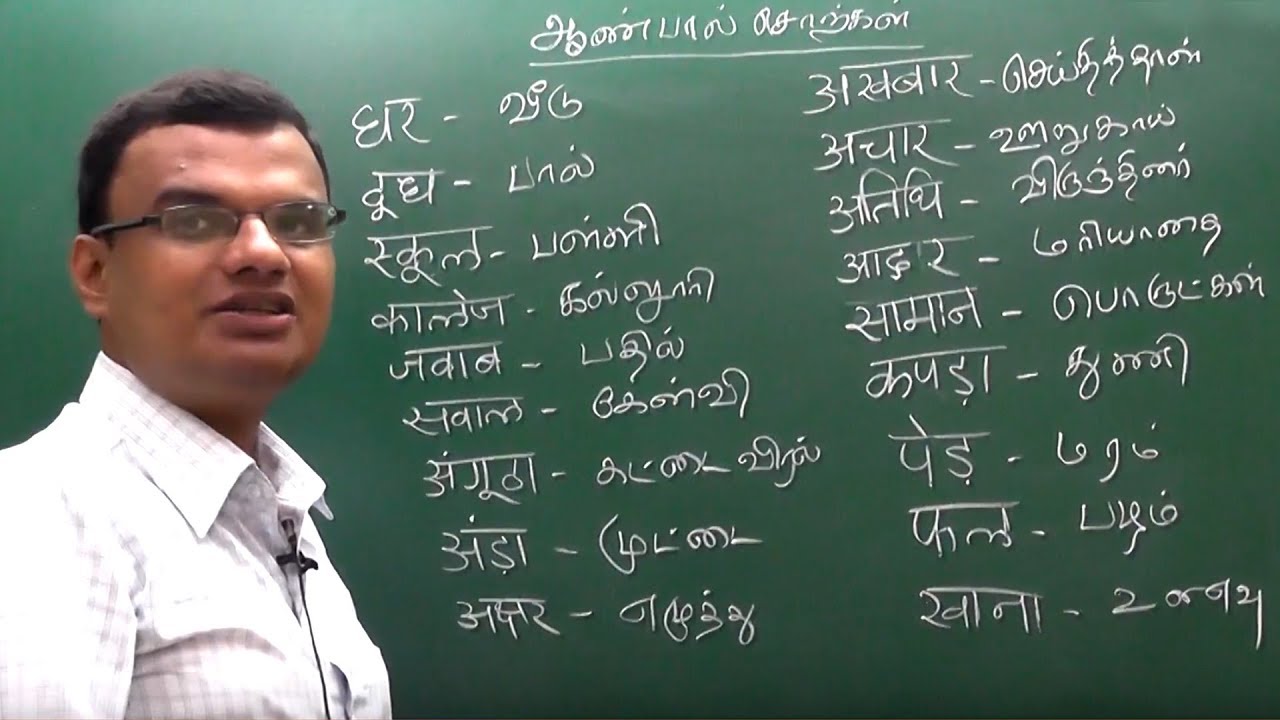 ஆண்பால் சொற்கள்
घर - வீடு
दूध - பால்
स्कूल - பள்ளி
कालेज - கல்லூரி
जवाब - பதில்
सवाल - கேள்வி
अंगूठा - கட்டை விரல்
अंड़ा - முட்டை
अक्षर - எழுத்து
अखबार - செய்தித்தாள்
अचार - ஊறுகாய்
अतिथि - விருந்தினர்
आदर - மரியாதை
सामान - பொருட்கள்
कपड़ा - துணி
पेड़ - மரம்
फल - பழம்
खाना - உணவு